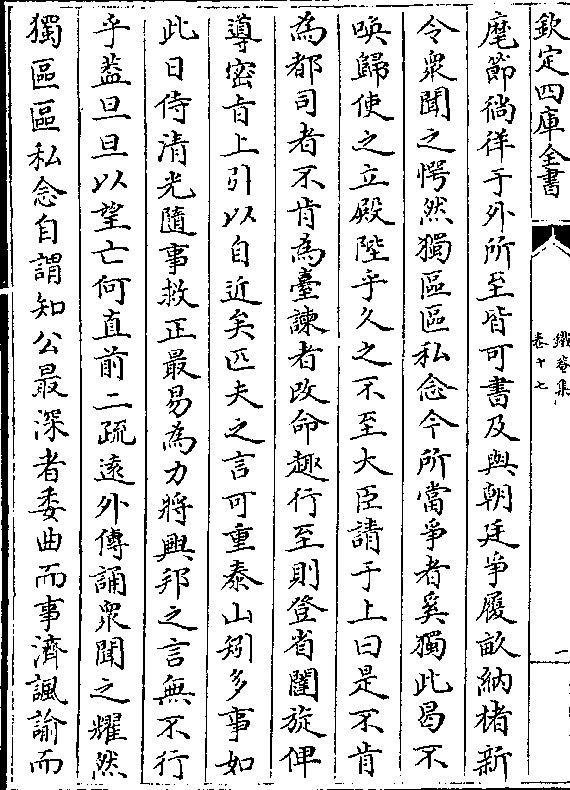 欽定四庫全書
鐵菴集
卷十七
一
麾節徜徉于外所至皆可書及與朝廷爭履畝納楮新
令衆聞之愕然獨區區私念今所當爭者奚獨此曷不
喚歸使之立殿陛乎久之不至大臣請于上曰是不肯
為都司者不肯為臺諫者改命趣行至則登省闥旋俾
導密旨上引以自近矣匹夫之言可重泰山矧多事如
此日侍清光隨事救正最易為力將興邦之言無不行
乎蓋旦旦以望亡何直前二疏遠外傳誦衆聞之耀然
獨區區私念自謂知公最深者委曲而事濟諷諭而